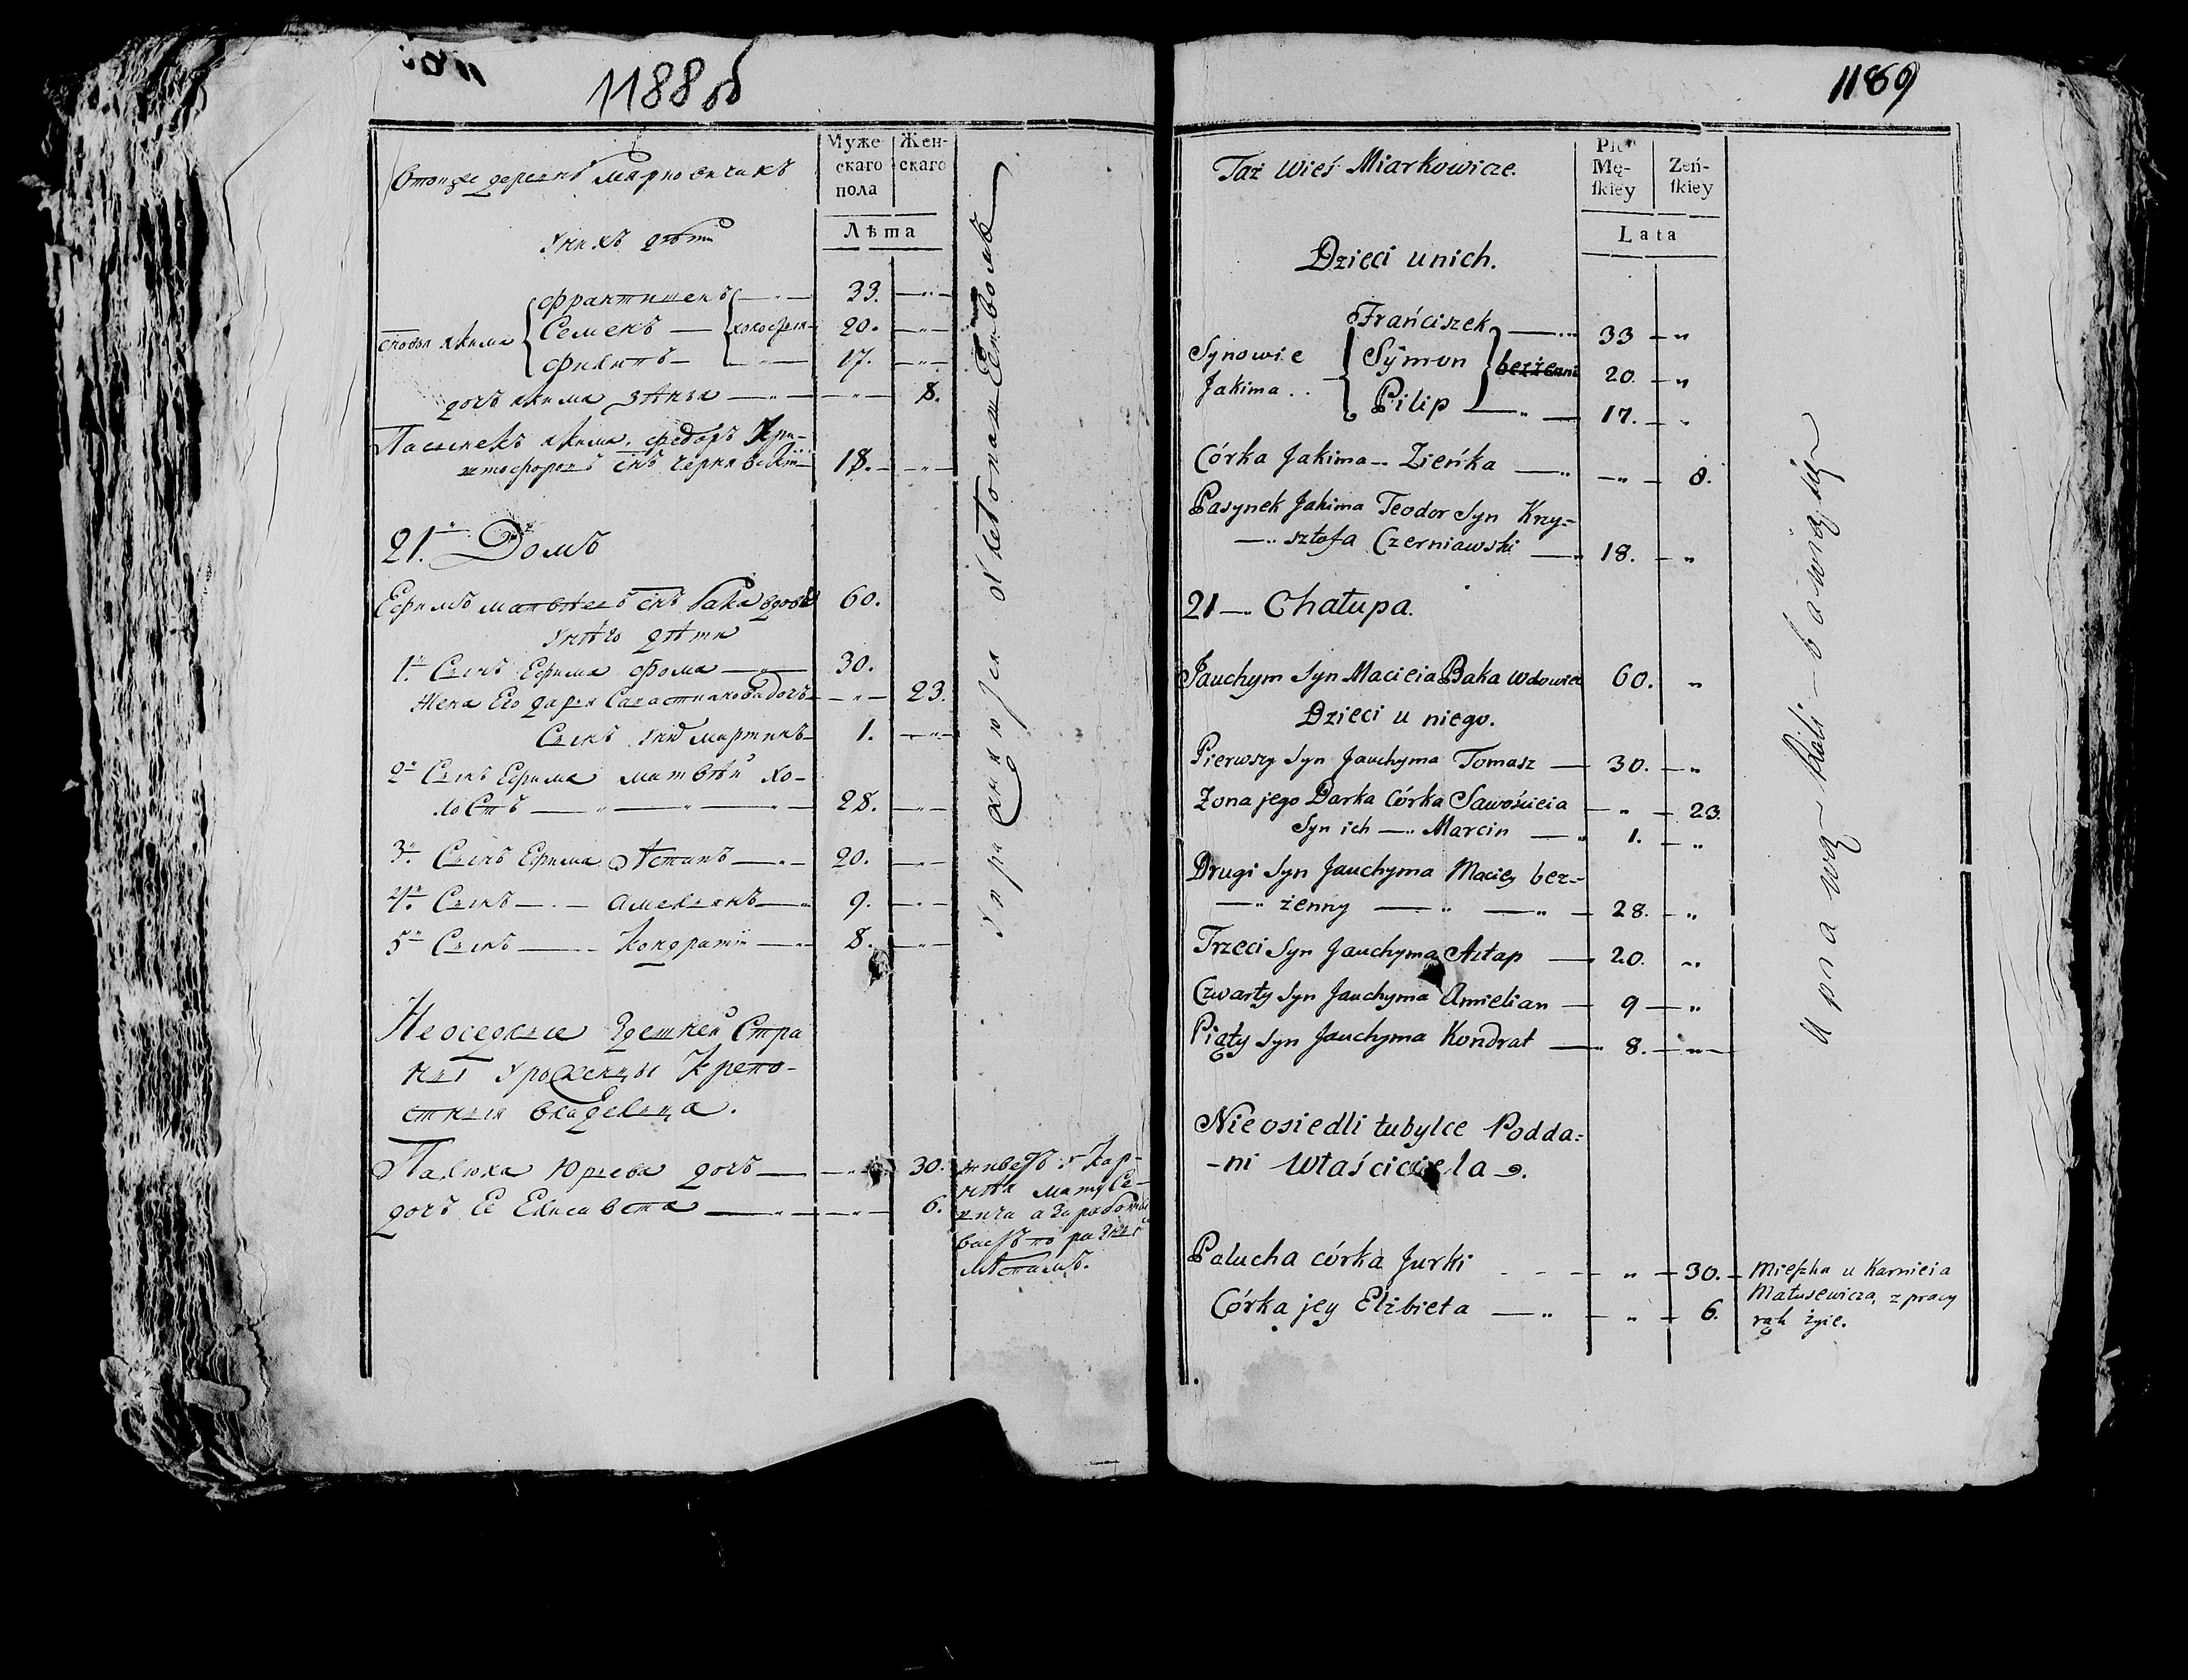 1188 об
В тойже деревнѣ Мярковичахъ
Муже-
скаго
пола
Жен-
скаго
Лѣта
У нихъ дѣти
Францишекъ 33.
Семенъ холосты 20.
Филипъ 17.
дочь Якима Зѣнка 8.
Пасынекъ Якима Федоръ Кри-
штофоровъ снъ Чернявскій 18.
21.й Домъ
Ефимъ Матвѣевъ снъ Бака вдовъ 60.
У него дѣти
1.й Сынъ Ефима Фома 30.
Жена Его Даря дочь 23.
Сынъ Мартинъ 1.
2й Сынъ Ефима Матвѣй хо-
лостъ 28.
3й Сынъ Ефима Астапъ 20.
4й Сынъ Амелянъ 9.
5й Сынъ Кондратій 8.
Неоседлые Здешней Стра
ны Уроженцы Крепо-
стныя владельца.
Палюха Юрьева дочь 30.
дочь Ее Елисавета 6.
живетъ у Кар-
нѣя Матусе-
вича а Заработы
ваетъ по разнымъ
мѣстамъ.
Упражняются хлебопашествомъ
1189
Taż Wieś Miarkowicze.
Płci
Mę-
skiey
Żeń-
skiey
Lata
Dzieci unich.
Frańciszek 33 "
Synowie Symon bezżenni 20. "
Jakima Pilip 17. "
Córka Jakima Zieńka " 8.
Pasynek Jakima Teodor Syn Krzy=
sztofa Czerniawski 18. "
21 Chałupa.
Jauchym Syn Macieia Baka Wdowiec 60. "
Dzieci u niego.
Pierwszy Syn Jauchyma Tomasz 30. "
Żona jego Darka Córka Sawościeia " 23.
Syn ich Marcin 1. "
Drugi Syn Jauchyma Maciey bez=
żenny 28. "
Trzeci Syn Jauchyma Astap 20. "
Czwarty Syn Jauchyma Amielian 9 "
Piąty Syn Jauchyma Kondrat 8. "
Nieosiedli tubylce Podda=
-ni Właściciela.
Palucha córka Jurki " 30.
Córka jey Elżbieta " 6.
Mieszka u Karnieia
Matusewicza, z pracy
rąk żyie.
Uprawą Roli bawią się